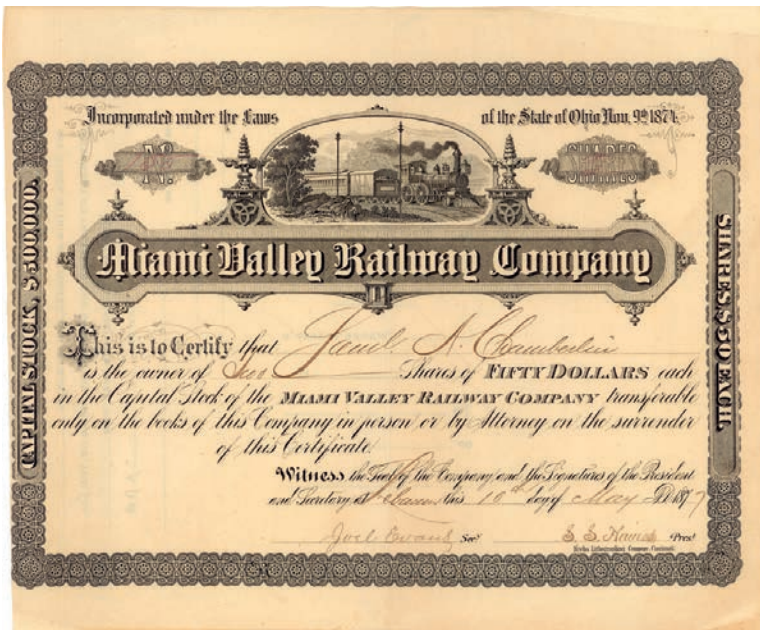 Incorporated under the Laws of the State of Ohio Nov. 9th 1874
No. SHARES
Miami Valley Railway Company
CAPITAL STOCK, $500,000.
SHARES $50 EACH.
This is to Certify that Saml. A. Chamberlin
is the owner of Two Shares of FIFTY DOLLARS each
in the Capital Stock of the MIAMI VALLEY RAILWAY COMPANY transferable
only on the books of this Company in person or by Attorney on the surrender
of this Certificate.
Witness the Seal of the Company and the Signatures of the President
and Secretary at Lebanon this 10th day of May AD 1877
Joel Evans Secy. S. S. Pres't
Company Cincinnati